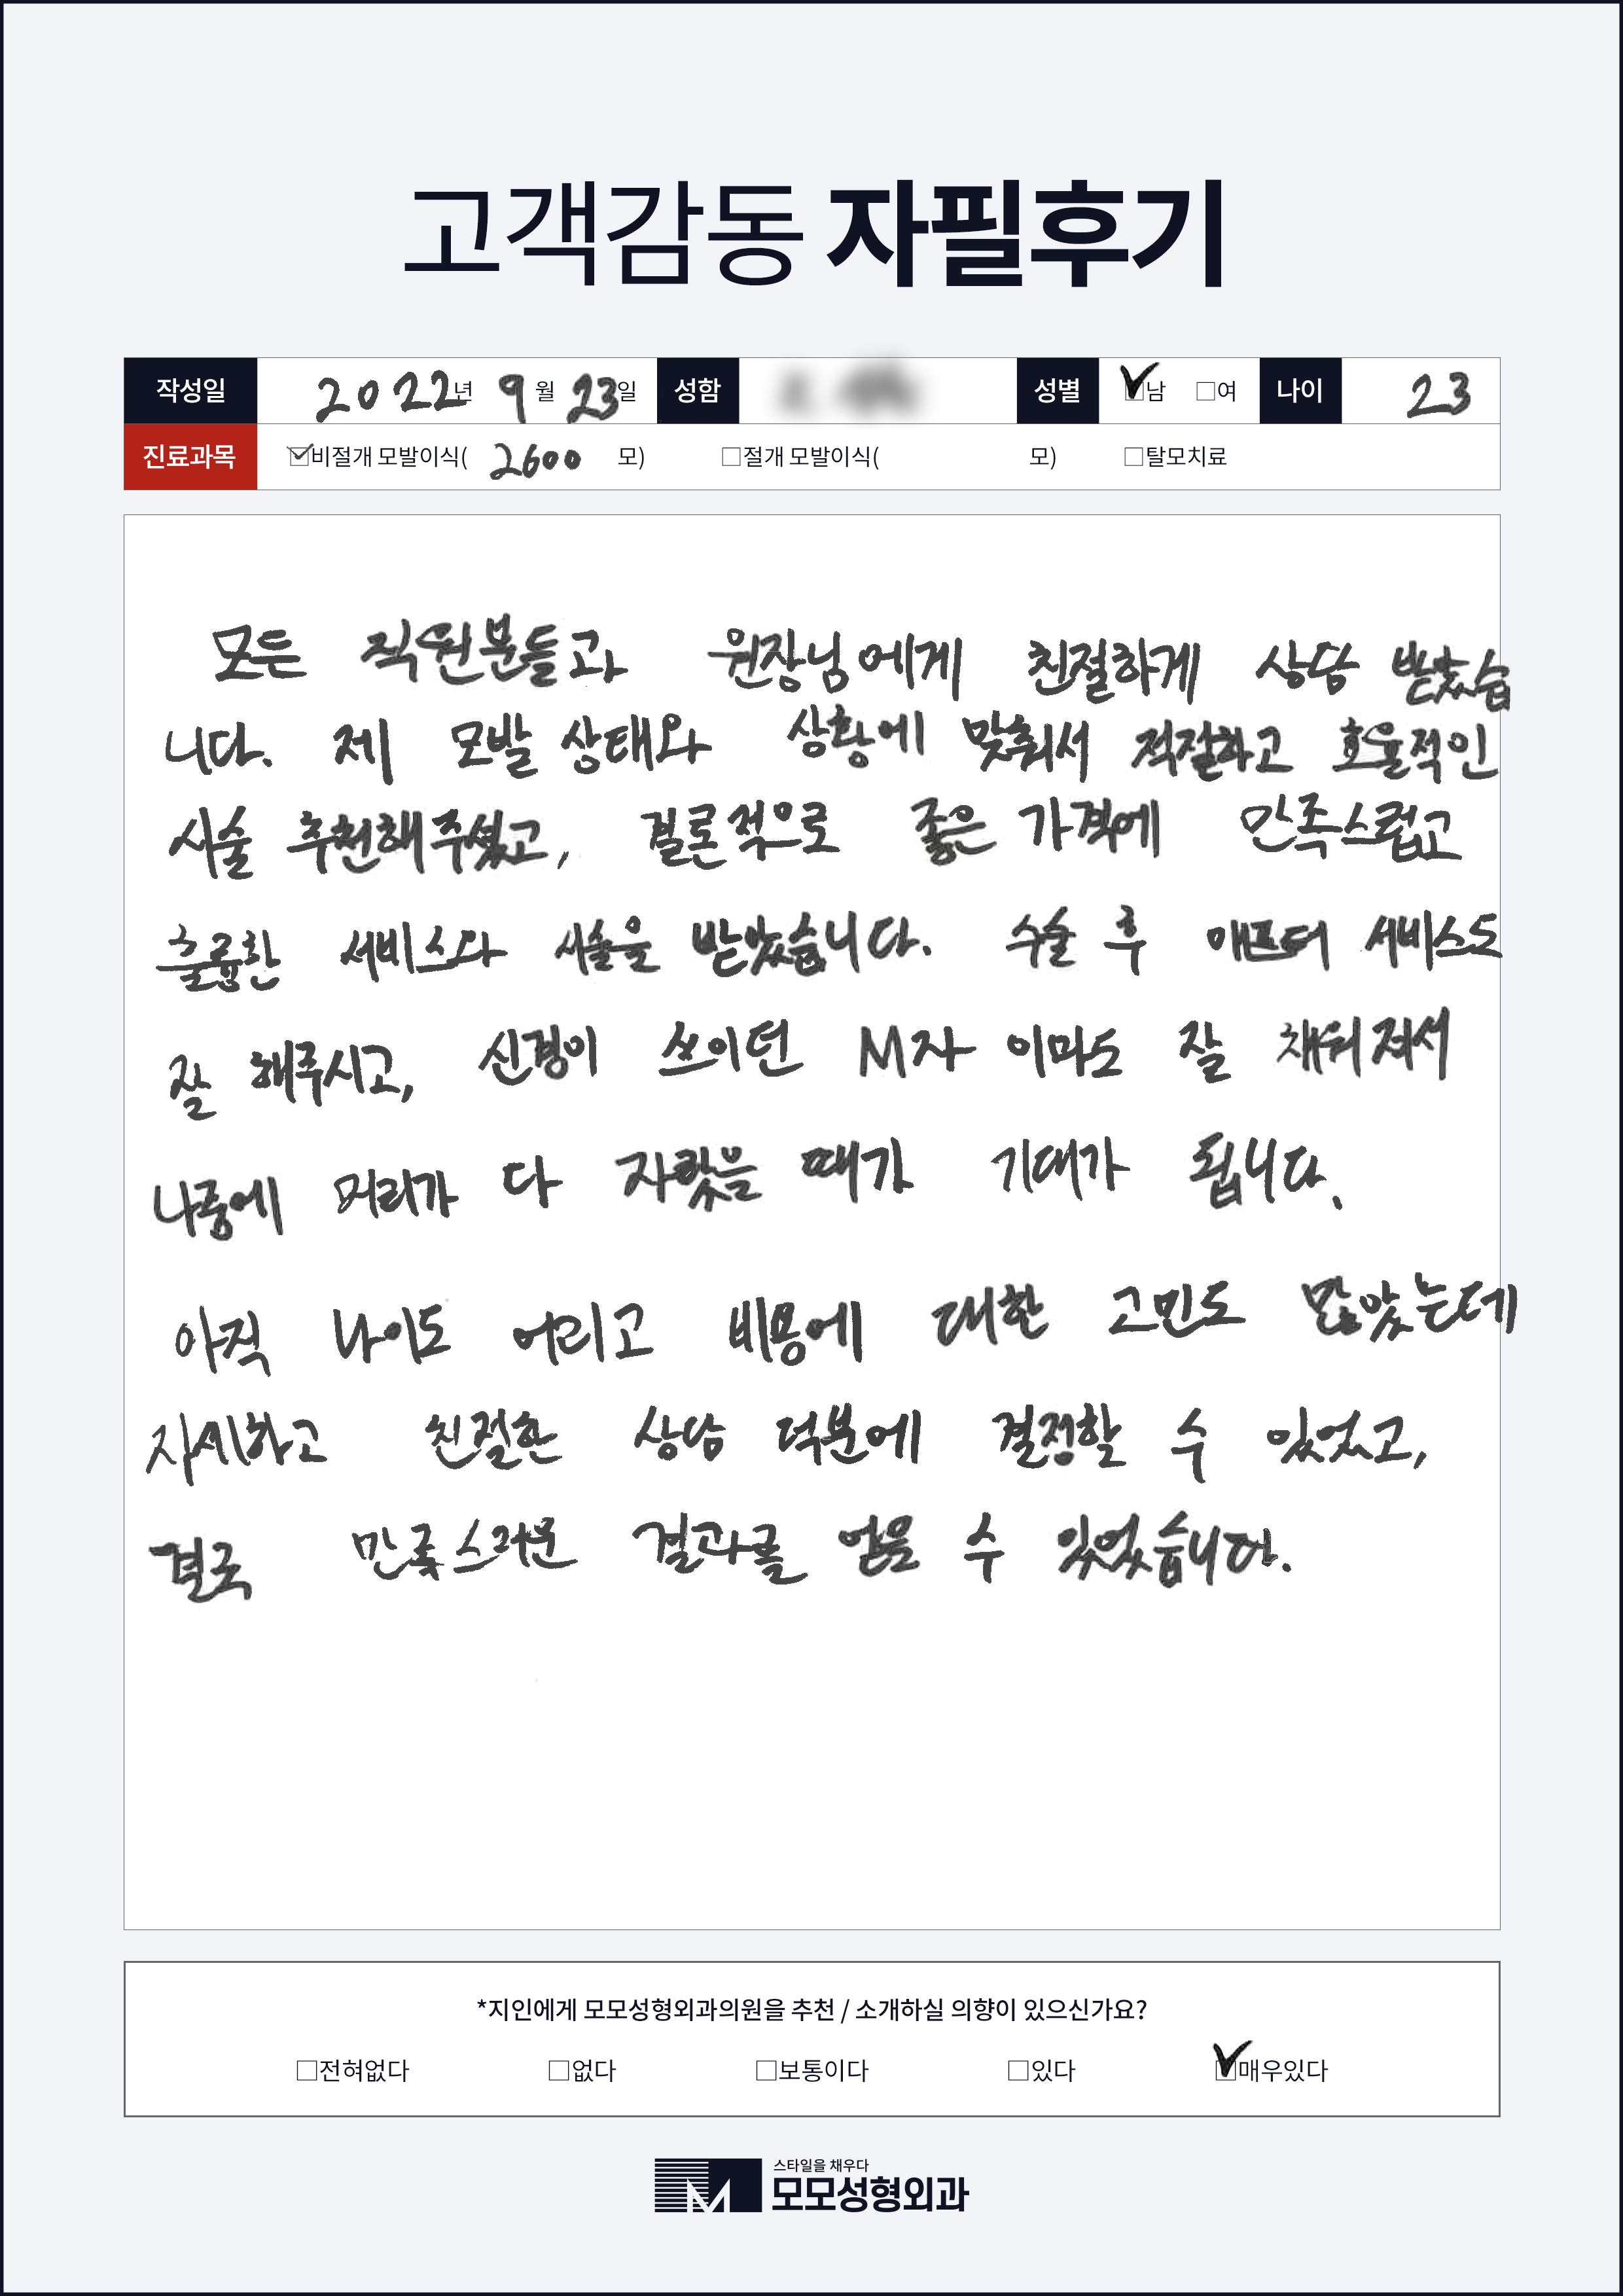 고객감동 자필후기
작성일 2022년 9월 23일 성함 성별 ☑남 □여 나이 23
진료과목 ☑비절개 모발이식( 2600 모) □절개 모발이식( 모) □탈모치료
모든 직원분들과 원장님에게 친절하게 상담 받았습
니다. 제 모발 상태와 상황에 맞춰서 적절하고 효율적인
시술 추천해주셨고, 결론적으로 좋은 가격에 만족스럽고
훌륭한 서비스와 시술을 받았습니다. 수술 후 애프터 서비스도
잘 해주시고, 신경이 쓰이던 M자 이마도 잘 채워져서
나중에 머리가 다 자랐을 때가 기대가 됩니다.
아직 나이도 어리고 비용에 대한 고민도 많았는데
자세하고 친절한 상담 덕분에 결정할 수 있었고,
결국 만족스러운 결과를 얻을 수 있었습니다.
*지인에게 모모성형외과의원을 추천 / 소개하실 의향이 있으신가요?
□전혀없다 □없다 □보통이다 □있다 ☑매우있다
스타일을 채우다
모모성형외과